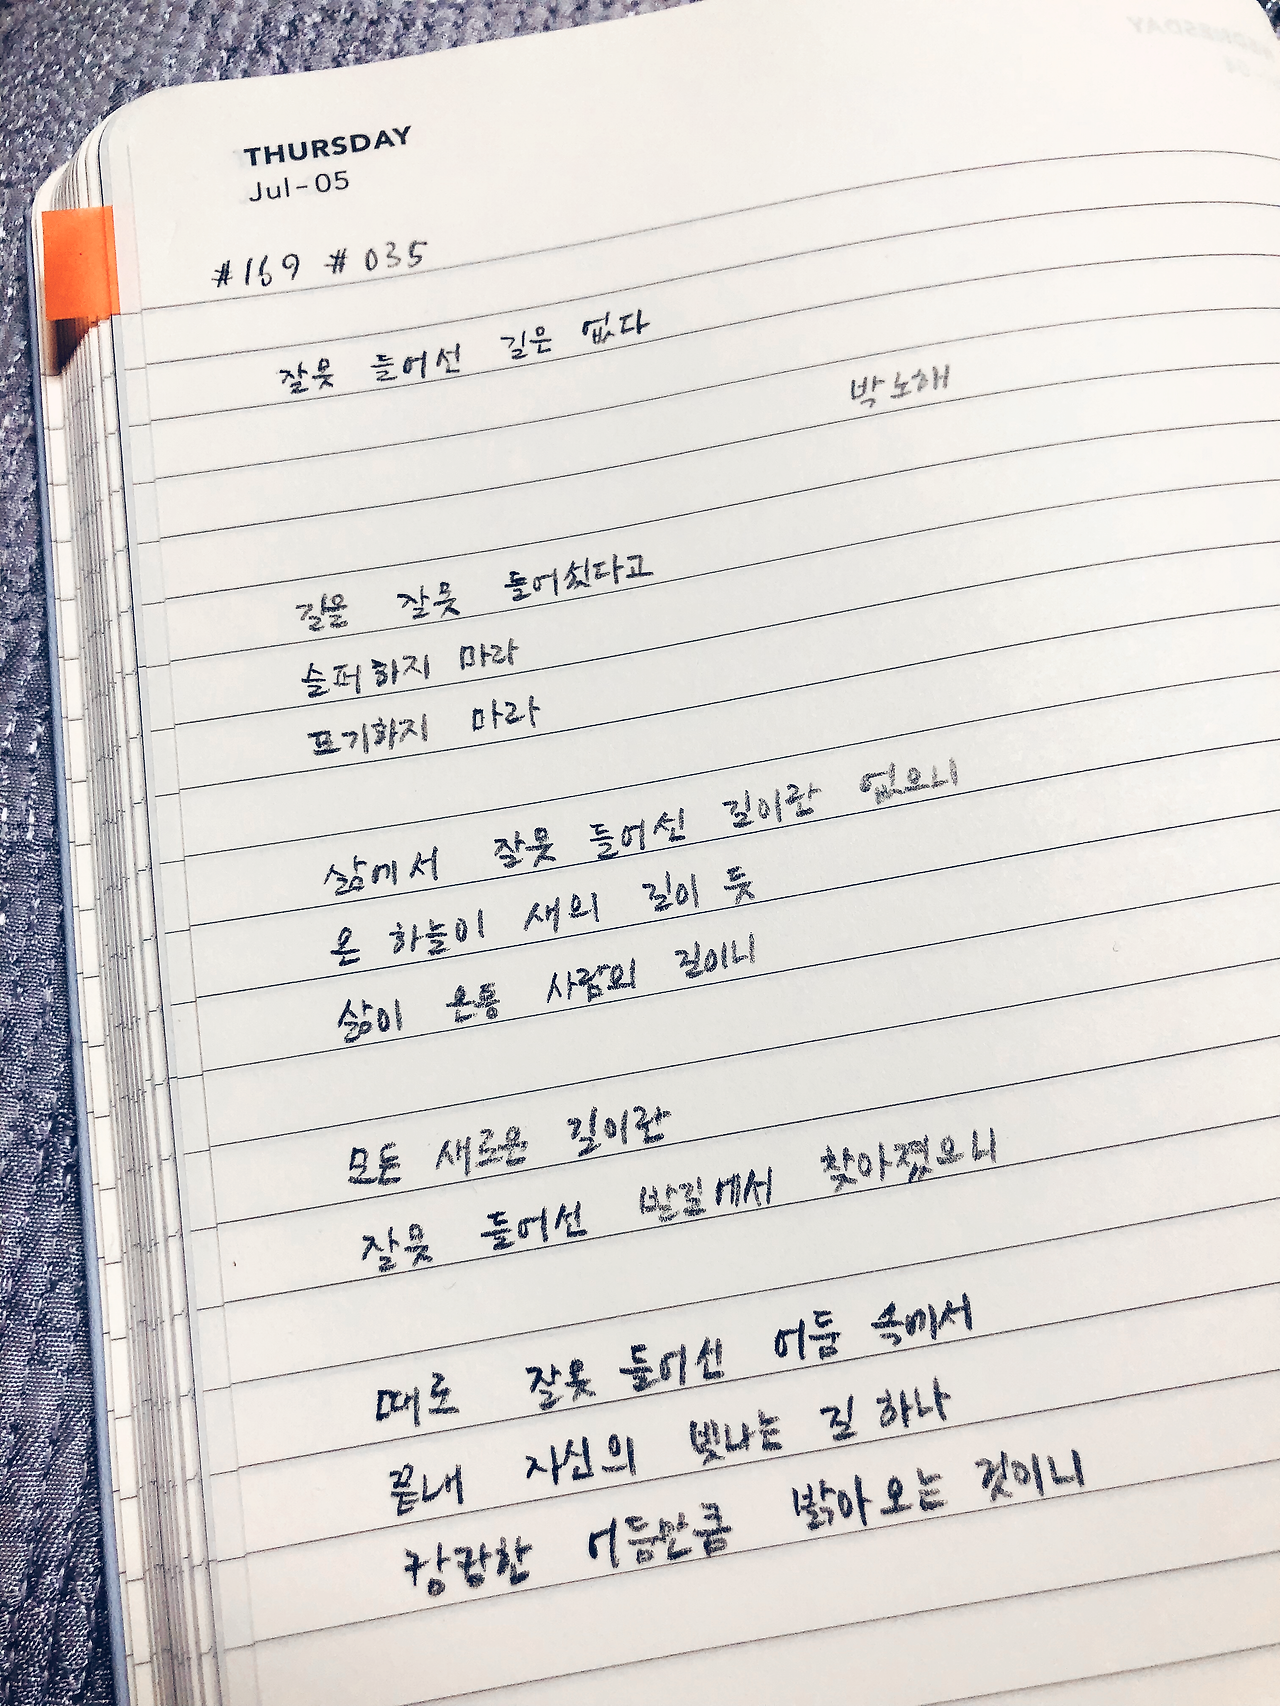 THURSDAY
Jul-05
#169 #035
잘못 들어선 길은 없다
박노해
길을 잘못 들어섰다고
슬퍼하지 마라
포기하지 마라
삶에서 잘못 들어선 길이란 없으니
온 하늘이 새의 길이 듯
삶이 온통 사람의 길이니
모든 새로운 길이란
잘못 들어선 발길에서 찾아졌으니
때로 잘못 들어선 어둠 속에서
끝내 자신의 빛나는 길 하나
캄캄한 어둠만큼 밝아오는 것이니